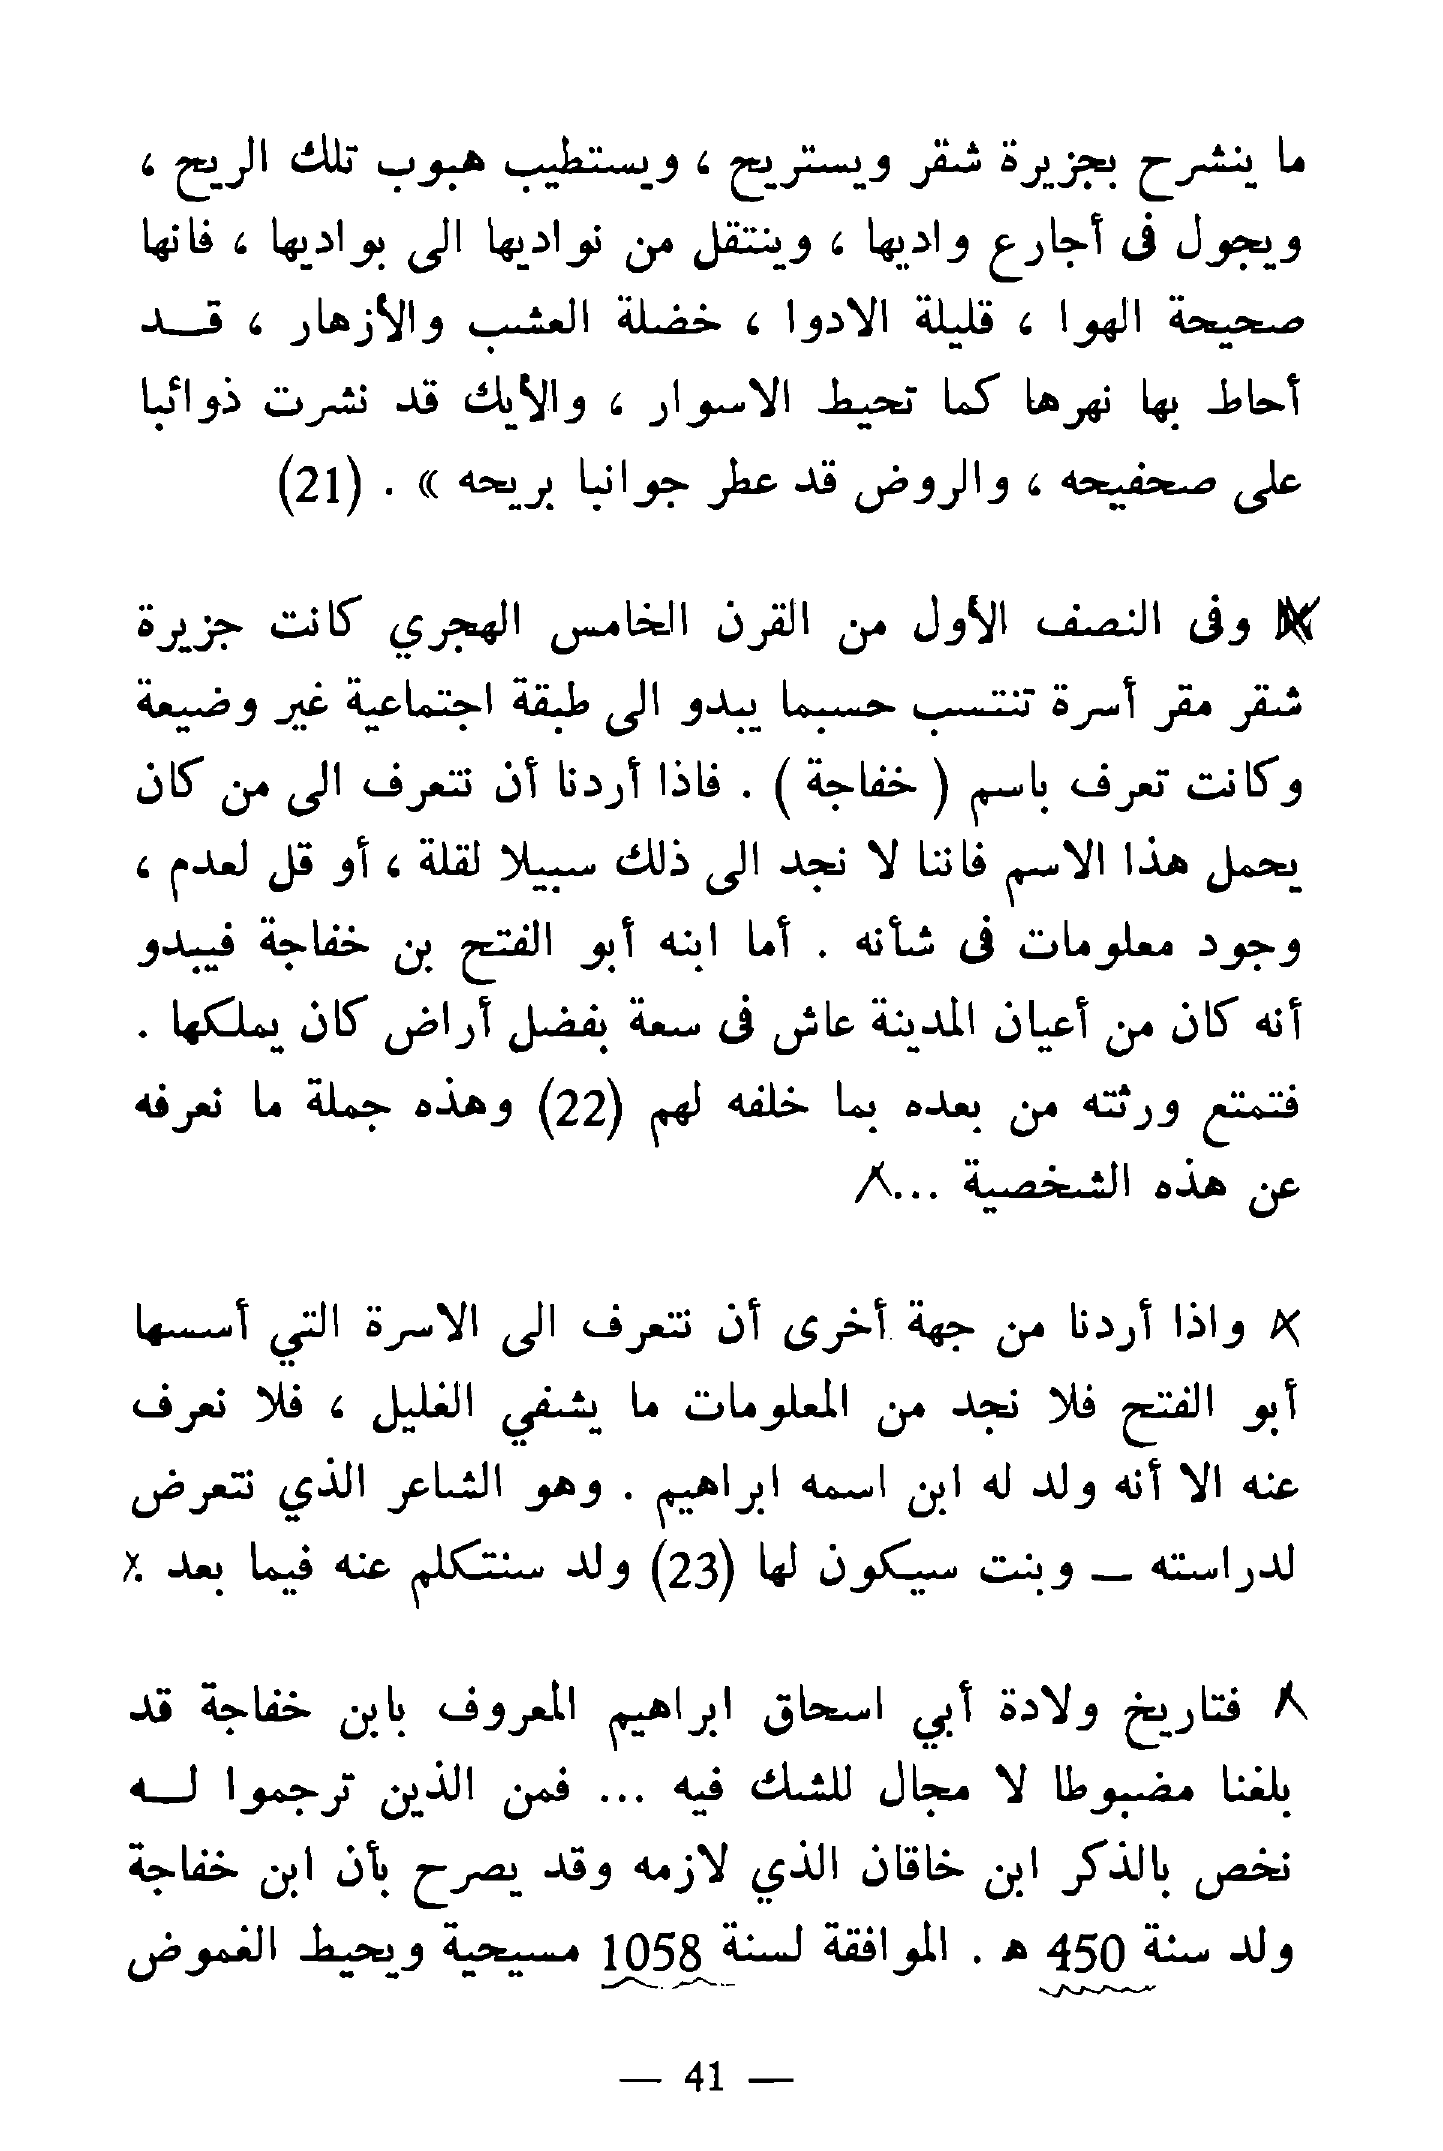 ما ينشرح بجزيرة شقر ويستريح ، ويستطيب هبوب تلك الريح ،
ويجول فى أجارع واديها ، وينتقل من نواديها الى بواديها ، فانها
صحيحة الهوا ، قليلة الادوا ، خضلة العشب والأزهار ، قــد
أحاط بها نهرها كما تحيط الاسوار ، والأيك قد نشرت ذوائبا
على صحفيحه ، والروض قد عطر جوانبا بريحه » . (21)
وفى النصف الأول من القرن الخامس الهجري كانت جزيرة
شقر مقر أسرة تنتسب حسبما يبدو الى طبقة اجتماعية غير وضيعة
وكانت تعرف باسم ( خفاجة ) . فاذا أردنا أن نتعرف الى من كان
يحمل هذا الاسم فاننا لا نجد الى ذلك سبيلا لقلة ، أو قل لعدم ،
وجود معلومات فى شأنه . أما ابنه أبو الفتح بن خفاجة فيبدو
أنه كان من أعيان المدينة عاش فى سعة بفضل أراض كان يملكها .
فتمتع ورثته من بعده بما خلفه لهم (22) وهذه جملة ما نعرفه
عن هذه الشخصية ...
واذا أردنا من جهة أخرى أن نتعرف الى الاسرة التي أسسها
أبو الفتح فلا نجد من المعلومات ما يشفي الغليل ، فلا نعرف
عنه الا أنه ولد له ابن اسمه ابراهيم . وهو الشاعر الذي نتعرض
لدراسته — وبنت سيكون لها (23) ولد سنتكلم عنه فيما بعد .
فتاريخ ولادة أبي اسحاق ابراهيم المعروف بابن خفاجة قد
بلغنا مضبوطا لا مجال للشك فيه ... فمن الذين ترجموا لــه
نخص بالذكر ابن خاقان الذي لازمه وقد يصرح بأن ابن خفاجة
ولد سنة 450 ه . الموافقة لسنة 1058 مسيحية ويحيط الغموض
— 41 —